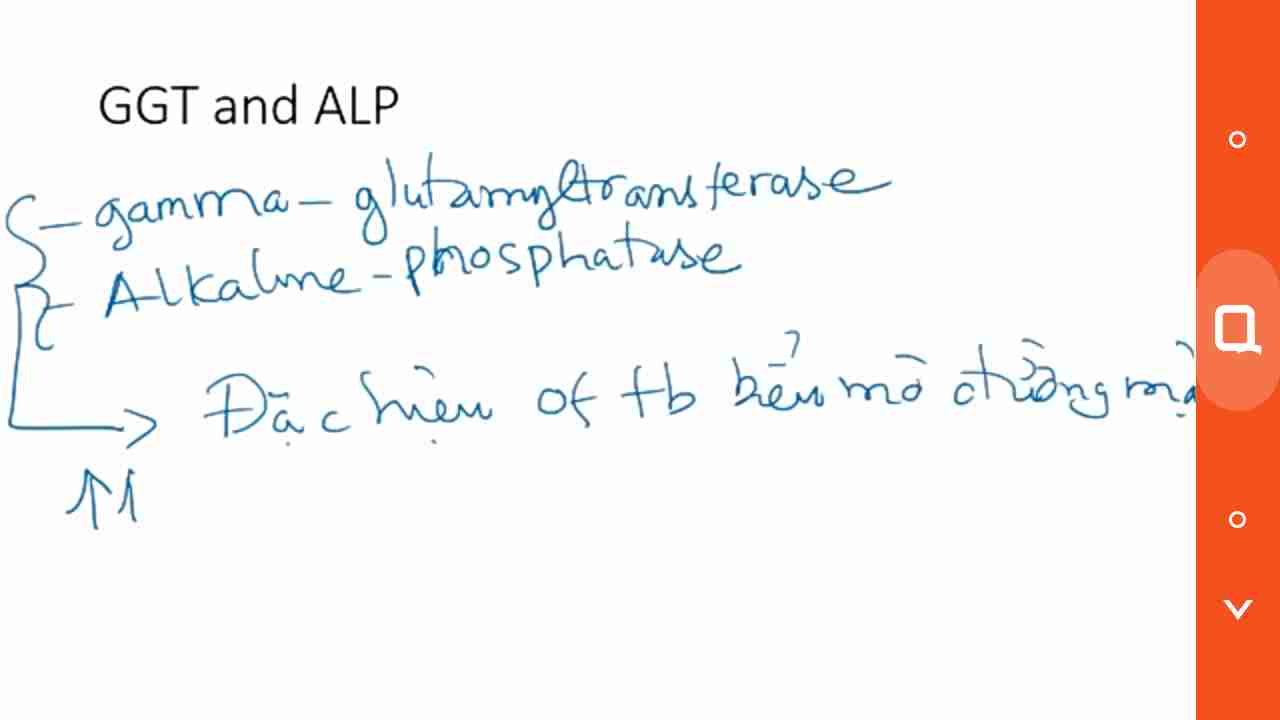 GGT and ALP
- gamma - glutamyltransferase
- Alkaline - phosphatase
→ Đặc hiệu of tb biểu mô đường
↑↑